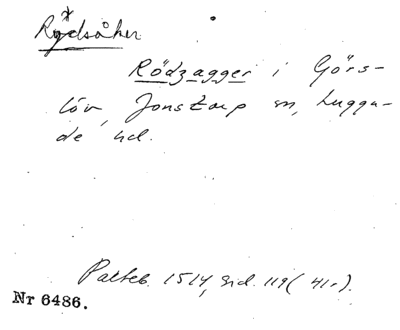 Rydsåker
Rödzagger i Görs-
löv, Jonstorp sn, Luggu-
de hd.
Palteb. 1514, sid. 119 (41r).
Nr 6486.